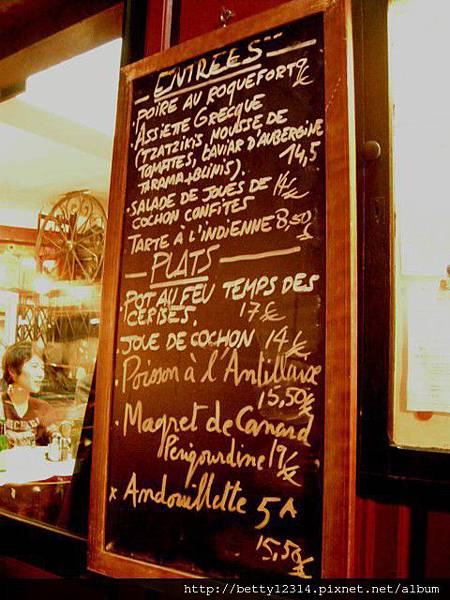 ENTRÉES
POIRE AU ROQUEFORT 9€
ASSIETTE GRECQUE
(TZATZIKIS, MOUSSE DE
TOMATES, CAVIAR D'AUBERGINE
TARAMA+BLINIS). 14,5
SALADE DE JOUES DE 14€
COCHON CONFITES
TARTE À L'INDIENNE 8,50€
PLATS
POT AU FEU TEMPS DES
CERISES. 17€
JOUE DE COCHON 14€
Poisson à l'Antillaise
15,50€
Magret de Canard
Périgourdine 19€
x Andouillette 5A
15,50€
http://betty12314.pixnet.net/album